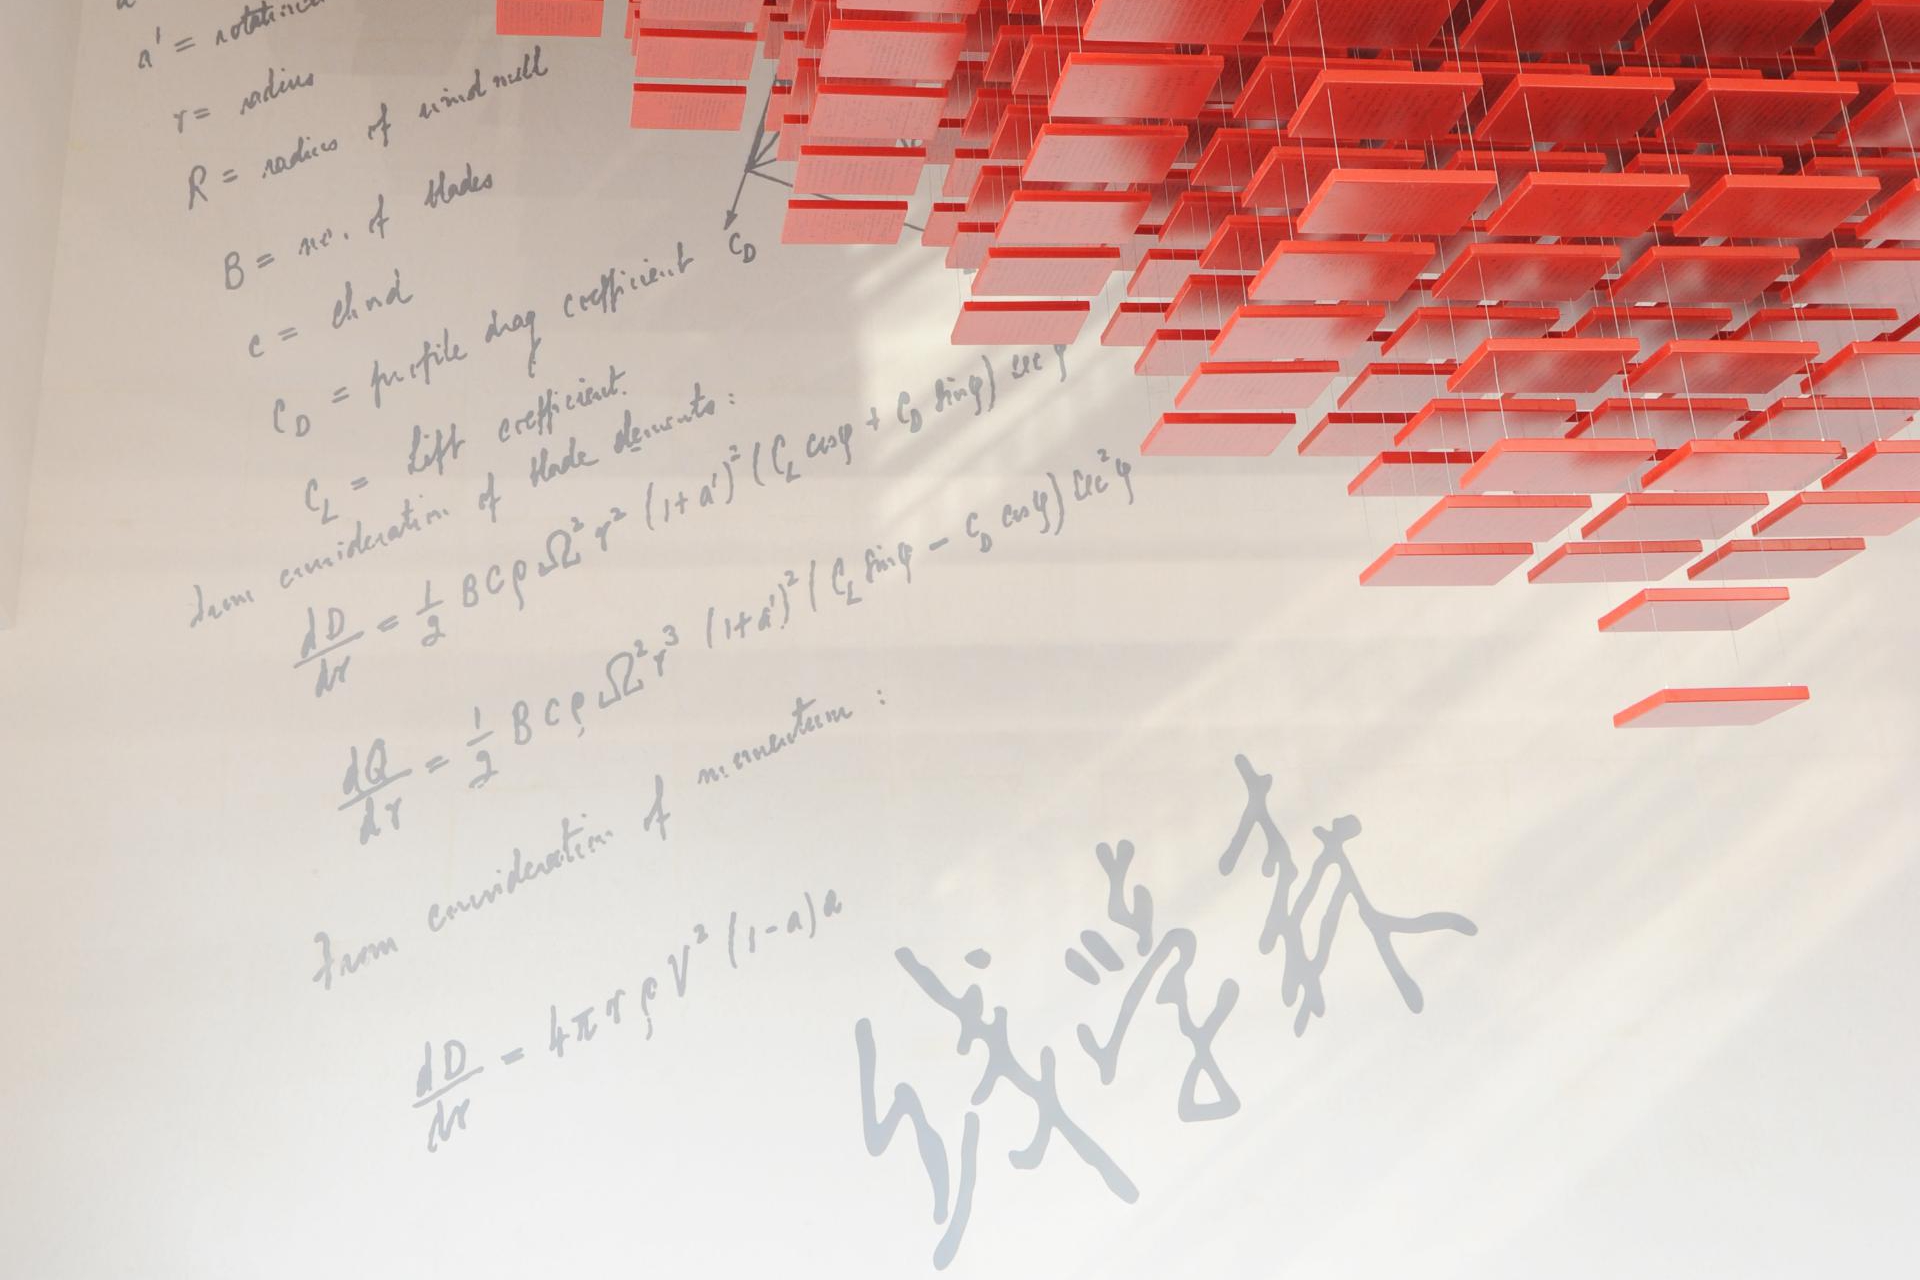 a' =
r = radius
R = radius of windmill
B = no. of blades
c = chord
C_D = profile drag coefficient
C_D
C_L = Lift coefficient.
From consideration of blade elements:
dD/dr = 1/2 B C ρ Ω² r² (1+a')² (C_L cosφ + C_D sinφ) sec²φ
dQ/dr = 1/2 B C ρ Ω² r³ (1+a')² (C_L sinφ − C_D cosφ) sec²φ
From consideration of momentum:
dD/dr = 4πrρV² (1-a)a
钱学森